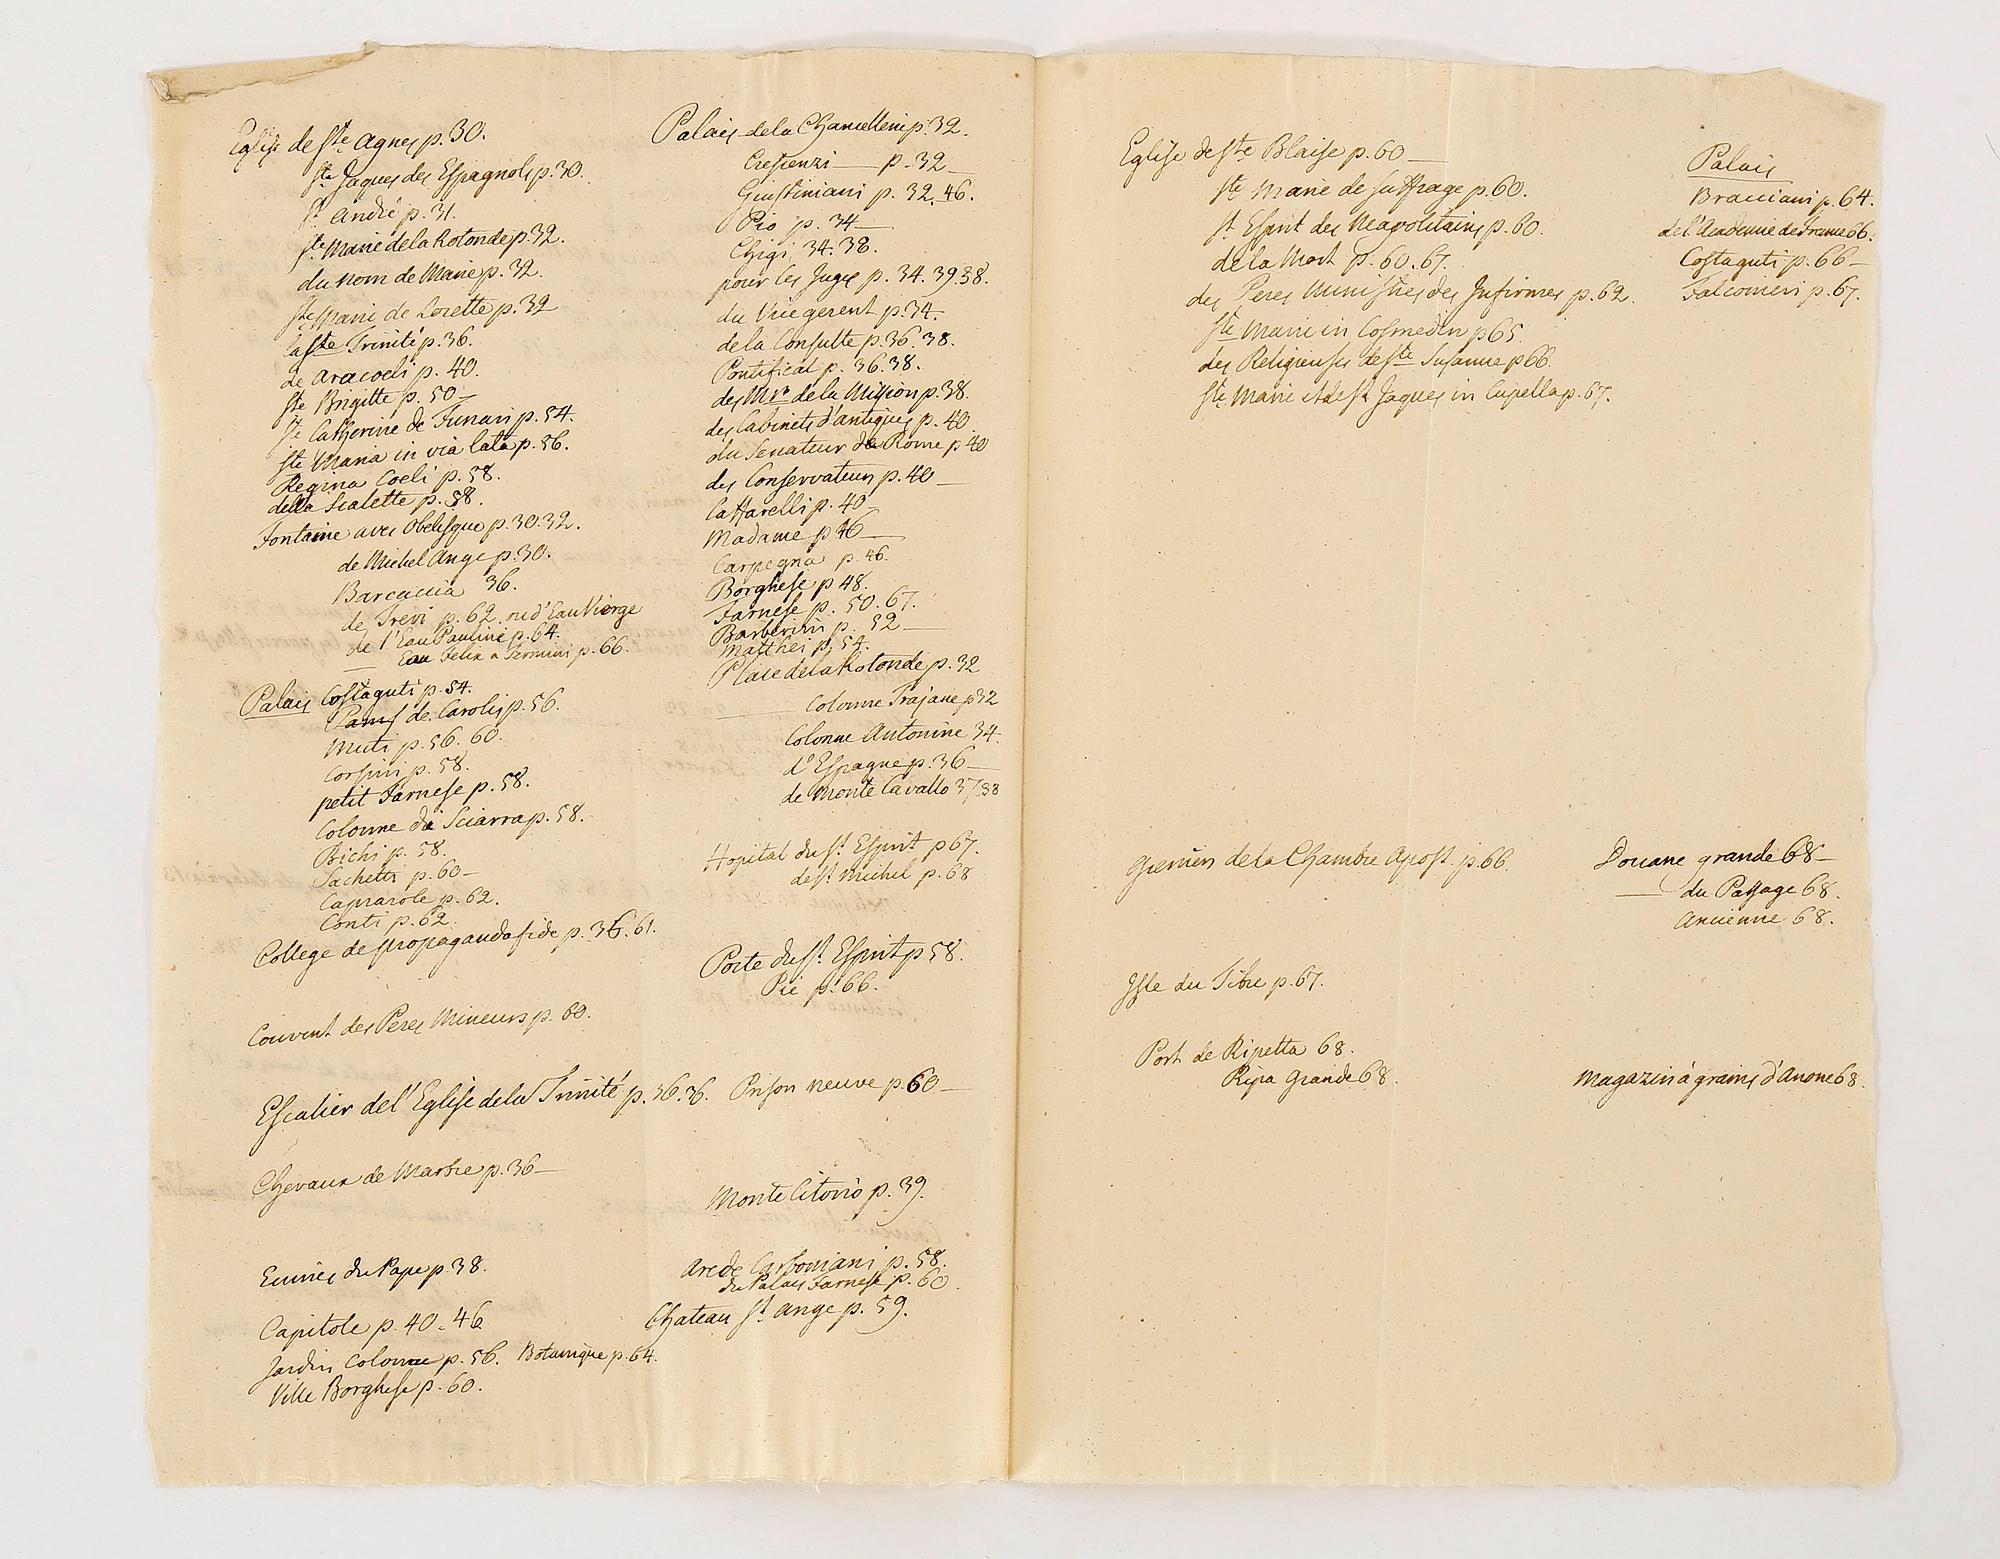 Eglise de Ste Agnes p. 30.
Ste Jaques des Espagnols p. 30.
St André p. 31.
Ste Marie de la Rotonde p. 32.
du nom de Marie p. 32.
Ste Marie de Lorette p. 32
la Ste Trinité p. 36.
de Aracoeli p. 40.
Ste Brigitte p. 50
Ste Catherine de Funari p. 54.
Ste Maria in via lata p. 56.
Regina Coeli p. 58.
della Scalette p. 58.
Fontaine avec Obelisque p. 30. 32.
de Michel Ange p. 30.
Barcaccia 36.
de Trevi p. 62. ou d'Eau Vierge
de l'Eau Pauline p. 64.
Eau Felix a Termini p. 66.
Palais Costaguti p. 54.
de Carolis p. 56.
Muti p. 56. 60.
Corsini p. 58.
petit Farnese p. 58.
Colonne di Sciarra p. 58.
Bichi p. 58.
Sachetti p. 60
Caprarole p. 62.
Conti p. 62.
College de propaganda fide p. 36. 61.
Couvent des Peres Mineurs p. 60.
Escalier de l'Eglise de la Trinité p. 36. 36.
Chevaux de Marbre p. 36
Ecuries du Pape p. 38.
Capitole p. 40. 46
Jardin Colonne p. 56. Botanique p. 64.
Ville Borghese p. 60.
Palais de la Chancellerie p. 32.
Crescenzi p. 32
Giustiniani p. 32. 46.
Pio p. 34
Chigi 34. 38.
pour les Juges p. 34. 39. 38.
du Vicegerent p. 34.
de la Consulte p. 36. 38.
Pontifical p. 36. 38.
des Mrs de la Mission p. 38.
des Cabinets d'antiques p. 40
du Senateur de Rome p 40
des Conservateurs p. 40
Caffarelli p. 40
Madame p 46
Carpegna p. 46.
Borghese p 48.
Farnese p. 50. 67.
Barberini p. 52
Matthei p. 54.
Place de la Rotonde p. 32
Colonne Trajane p 32
Colonne Antonine 34.
d'Espagne p. 36
de Monte Cavallo 37. 38
Hopital du St. Esprit p 67.
de St. Michel p. 68
Porte du St. Esprit p 58.
Pie p. 66.
Prison neuve p. 60
Monte Citorio p. 39.
Arc de Carboniani p. 58.
du Palais Farnese p. 60.
Chateau St Ange p. 59.
Eglise de Ste Blaise p. 60
Ste Marie de Suffrage p. 60.
St Esprit des Neapolitains p. 60.
de la Mort p. 60. 67.
des Peres Ministres des Infirmes p. 62.
Ste Marie in Cosmedin p 65.
des Religieuses de Ste Susanne p 66.
Ste Marie et de St Jaques in Cupella p. 67.
Palais
Bracciani p. 64.
de l'Academie de France 66.
Costaguti p. 66
Falconieri p. 67.
Greniers de la Chambre Apost. p. 66.
Douane grande 68
du Passage 68.
Ancienne 68.
Isle du Tibre p. 67.
Port de Ripetta 68.
Ripa Grande 68.
Magazin à grains d'Anone 68.